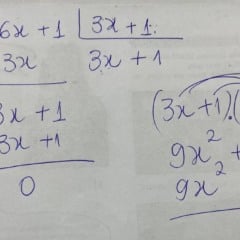 6x + 1 | 3x + 1
3x 3x + 1
3x + 1
3x + 1
0
(3x+1).(
9x² +
9x²